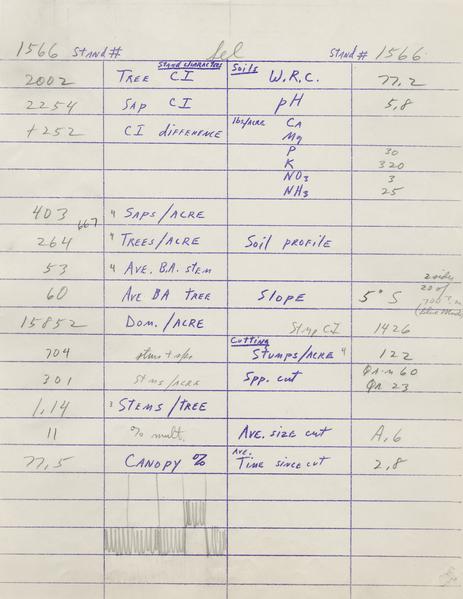 1566 Stand# Sel Stand # 1566
Stand Characters Soils
2002 Tree CI W.R.C. 77.2
2254 Sap CI pH 5.8
+252 CI difference lbs/acre Ca
Mg
P 30
K 320
NO3 3
NH3 25
403 " Saps/acre
667
264 " Trees/acre Soil profile
53 " Ave. B.A. stem
60 Ave BA tree Slope 5° S
2 sides
15852 Dom./acre Stmp CI 1426
Cutting
704 stms + saps Stumps/acre " 122
301 stms/acre Spp. cut 60
23
1.14 3 Stems/tree
11 % mult. Ave. size cut A, 6
77.5 Canopy % Ave. Time since cut 2.8